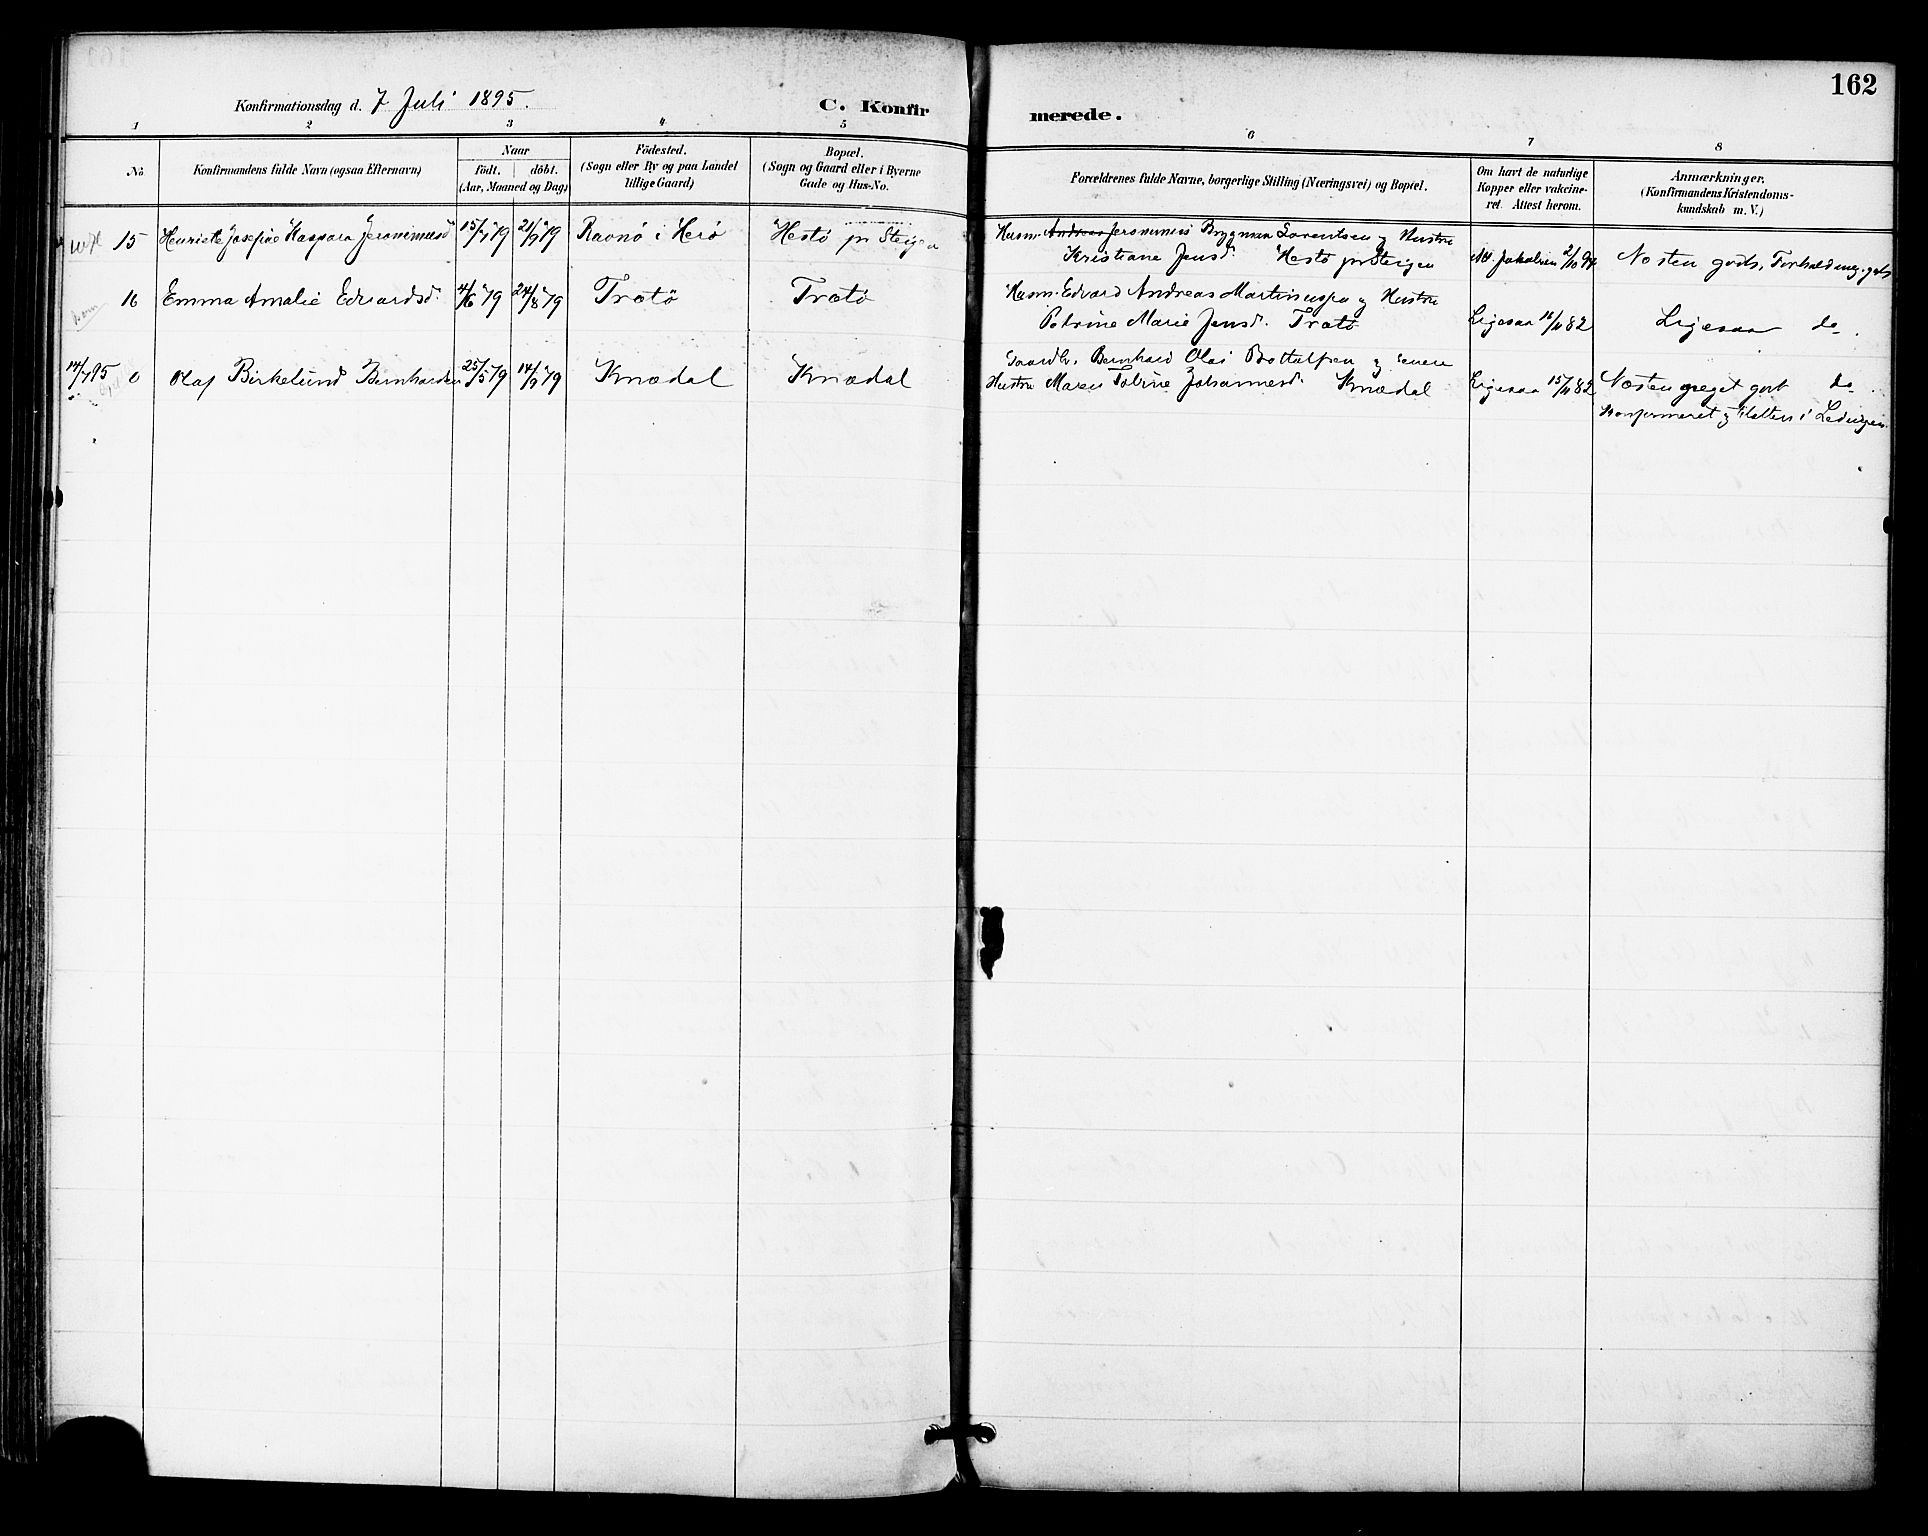 162
Konfirmationsdag d. 7 Juli 1895.
C. Konfirmerede.
1 2 3 4 5 6 7 8
No
Konfirmandens fulde Navn (ogsaa Efternavn)
Naar
födt. döbt.
(Aar, Maaned og Dag)
Födested.
(Sogn eller By og paa Landet
tillige Gaard)
Bopæl.
(Sogn og Gaard eller i Byerne
Gade og Hus-No.
Forældrenes fulde Navne, borgerlige Stilling (Næringsvei) og Bopæl.
Om havt de naturlige
Kopper eller vakcine-
ret. Attest herom.
Anmærkninger.
(Konfirmandens Kristendoms-
kundskab m. V.)
15 Henriette Josefine Kaspara Jeronimusd 15/1 79 21/9 79 Ravnö i Herö Hestö pr Steigen
Husm. Andreas Jeronimus Brygman Lorentsen og Hustru
Kristiane Jensd. Hestö pr Steigen
Jakobsen 2/10 94 Næsten godt. Forhold meg. godt
16 Emma Amalie Edvardsd. 4/6 79 24/8 79 Trætö Trætö
Husm. Edvard Andreas Martinussen og Hustru
Petrine Marie Jensd. Trætö
Ligesaa 16/11 82 Ligesaa do.
14/7 95 0 Olaf Birkelund Bernhardsen 25/5 79 14/9 79 Knædal Knædal
Gaardb. Bernhard Olai Bottolfsen og
Hustru Maren Tobine Johannesd. Knædal
Ligesaa 15/11 82 Næsten meget godt do.
Konfirmeret i Lödingen.